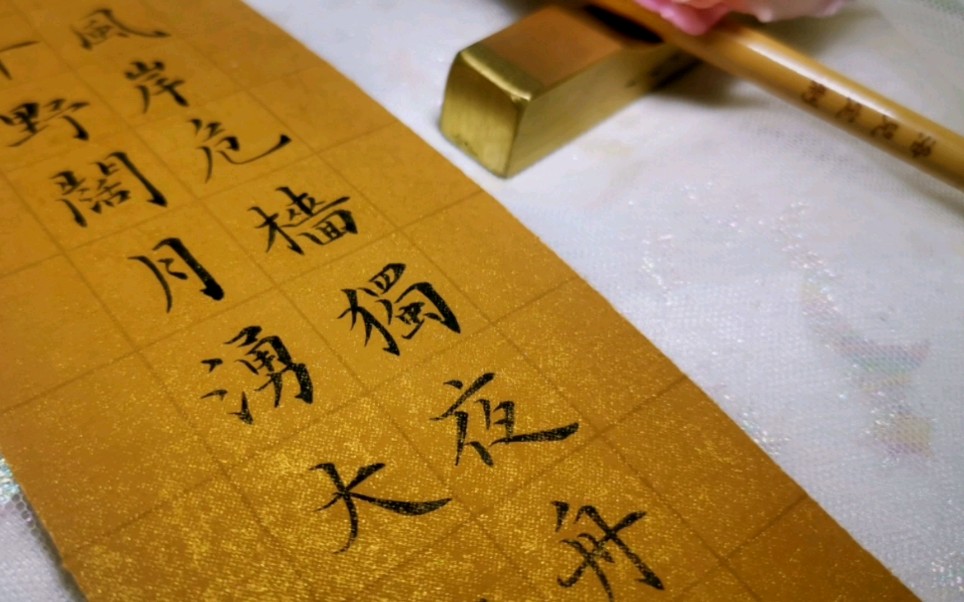 風岸危檣獨夜舟
野闊月湧大